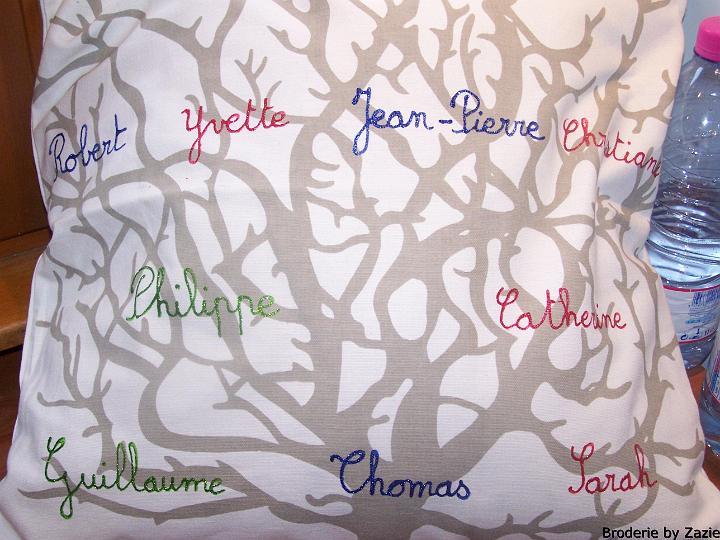 Robert Yvette Jean-Pierre Chrstiane
Philippe Catherine
Guillaume Thomas Sarah
Broderie by Zazie